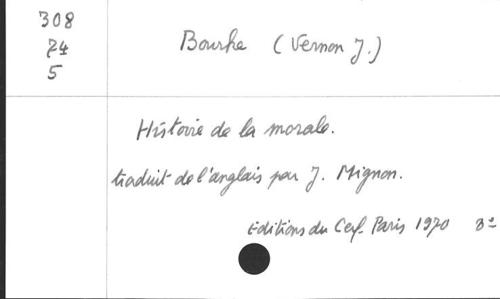 308
74
5
Bourke (Vernon J.)
Histoire de la morale.
traduit de l'anglais par J. Mignon.
Editions du Cerf. Paris 1970 8º